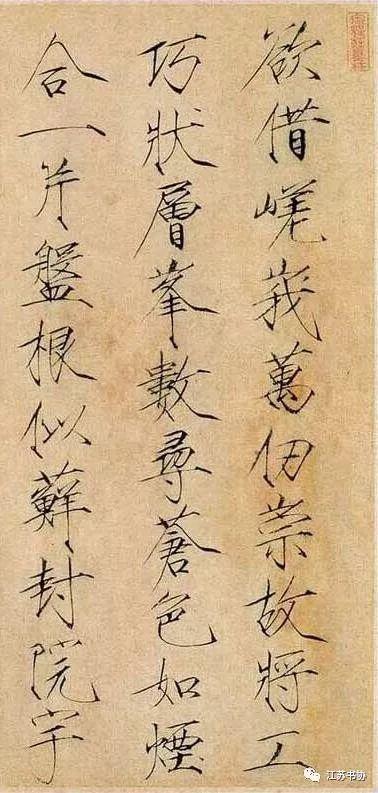 欲借嵯峨萬仞崇故將工
巧狀層峯數尋蒼色如煙
合一片盤根似蘚封院宇
江苏书协